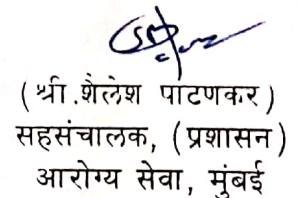 ( श्री.शैलेश पाटणकर )
सहसंचालक, (प्रशासन)
आरोग्य सेवा, मुंबई